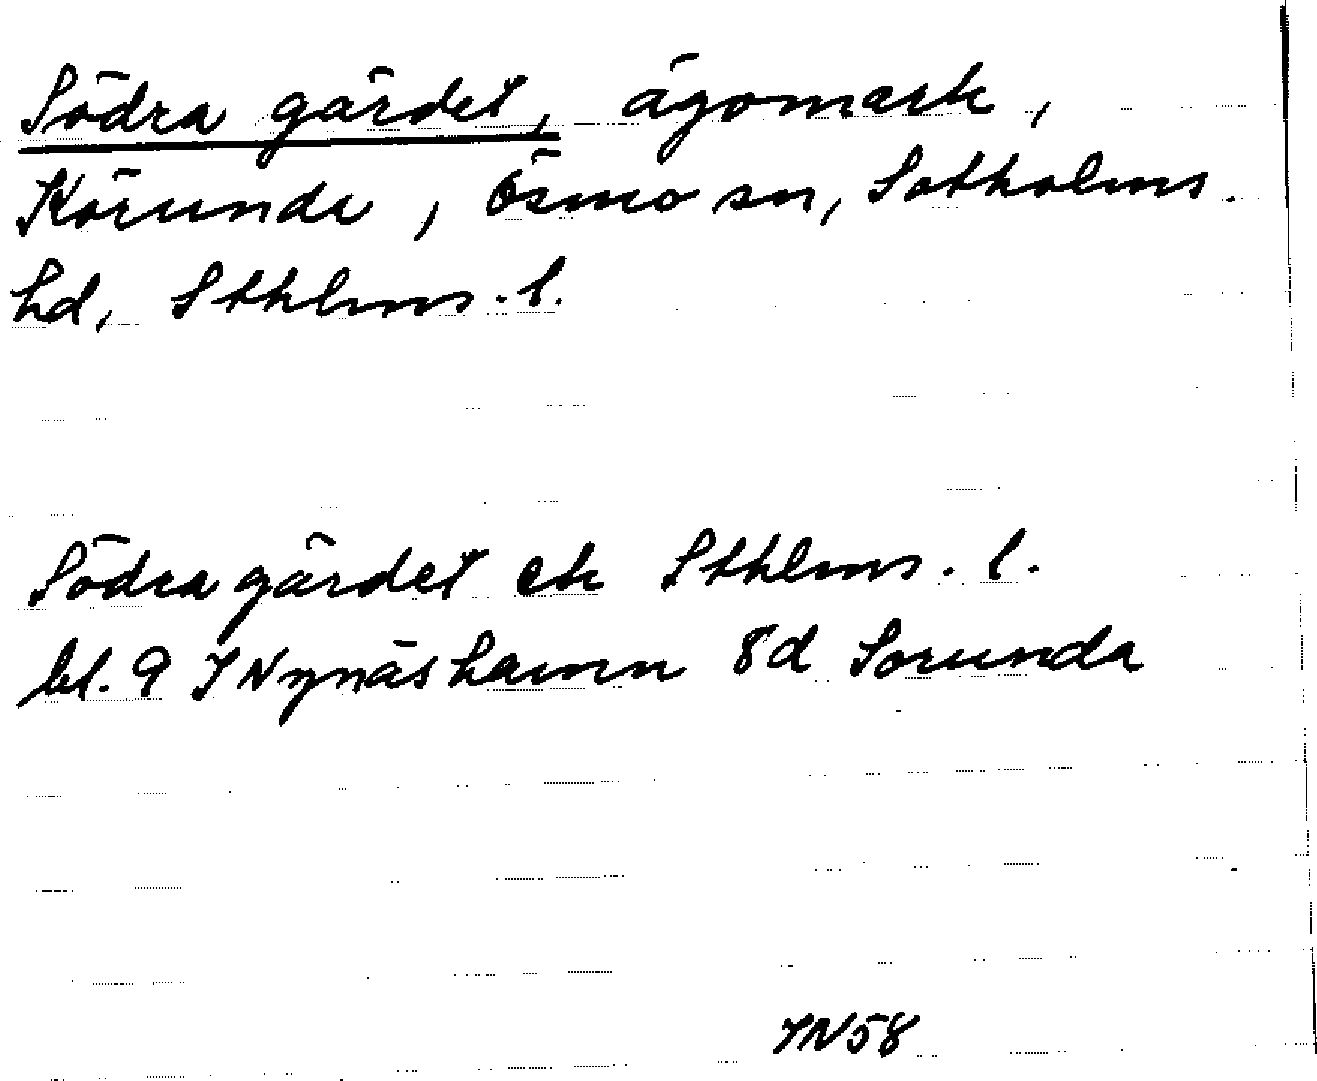 Södra gärdet, ägomark,
Körunda, Ösmo sn, Sotholms.
hd, Sthlms. l.
Södra gärdet ek Sthlms. l.
bl. 9 I Nynäshamn 8d Sorunda
IN58